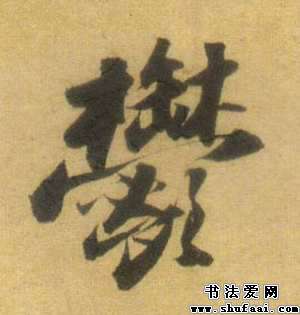 鬱
书法爱网
www.shufaai.com